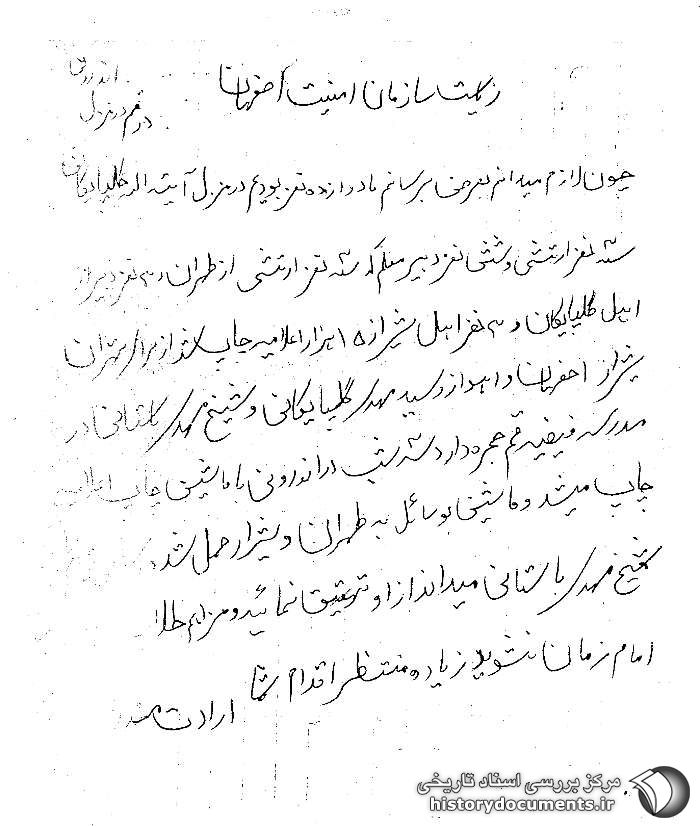 ریاست سازمان امنیت اصفهان
اندرونی
در قم منزل
چون لازم میدانم بعرض برسانم ما دوازده نفر بودیم در منزل آیته الله گلپایگانی
سه نفر ارتشی و شش نفر دبیر معلم که سه نفر ارتشی از طهران و ۳ نفر دبیر از
اهل گلپایگان و ۳ نفر اهل شیراز ۱۵ هزار اعلامیه چاپ شد از برای تهران
شیراز اصفهان و اهواز و سید مهدی گلپایگانی و شیخ مهدی باستانی در
مدرسه فیضیه قم حجره دارد سه شب در اندرونی با ماشین چاپ اعلامیه
چاپ میشد و ماشین بوسائل به طهران و شیراز حمل شد
شیخ مهدی باستانی میداند از او تحقیق نمائید و مزاحم طلاب
امام زمان نشوید زیاده منتظر اقدام شما ارادتمند
مرکز بررسی اسناد تاریخی
historydocuments.ir